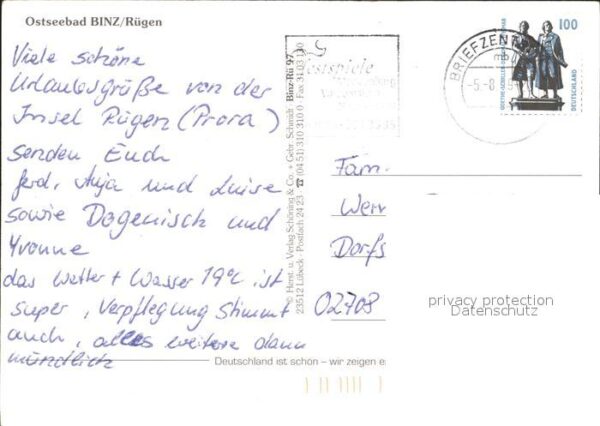 Ostseebad BINZ/Rügen
Viele schöne
Urlaubsgrüße von der
Insel Rügen (Prora)
senden Euch
ferd, Anja und Luise
sowie Dogenisch und
Yvonne
das Wetter + Wasser 19°C ist
super, Verpflegung stimmt
auch, alles weitere dann
mündlich
© Herst. u. Verlag Schöning & Co. + Gebr. Schmidt Binz-Rü 97
23512 Lübeck · Postfach 24 23 ☎ (04 51) 310 310 Fax 31 03
estspiele
BRIEFZENT
100
DEUTSCHLAND
Fam.
Wern
Dorfs
02708
privacy protection
Datenschutz
Deutschland ist schön – wir zeigen e